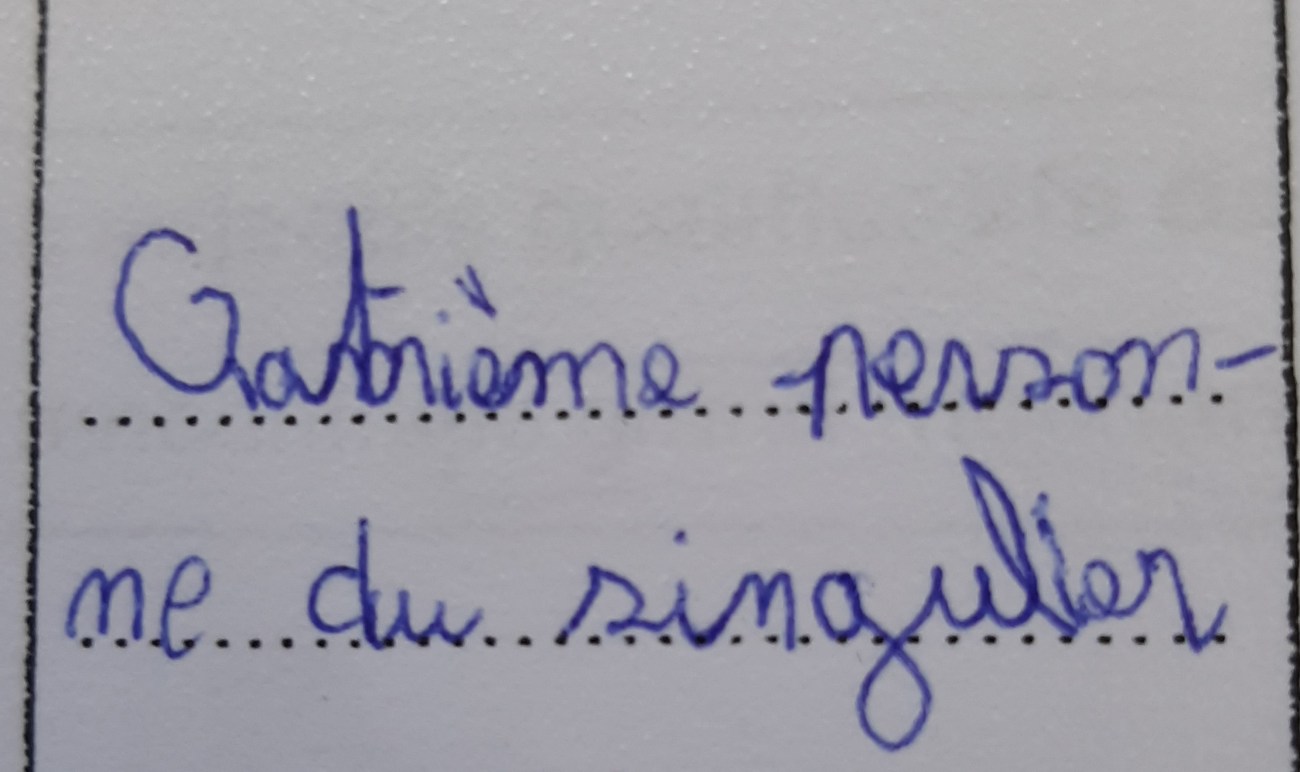 Catrième person-
ne du singulier